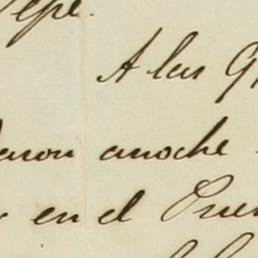 Pepe.
A las 9
aron anoche
en el Puer